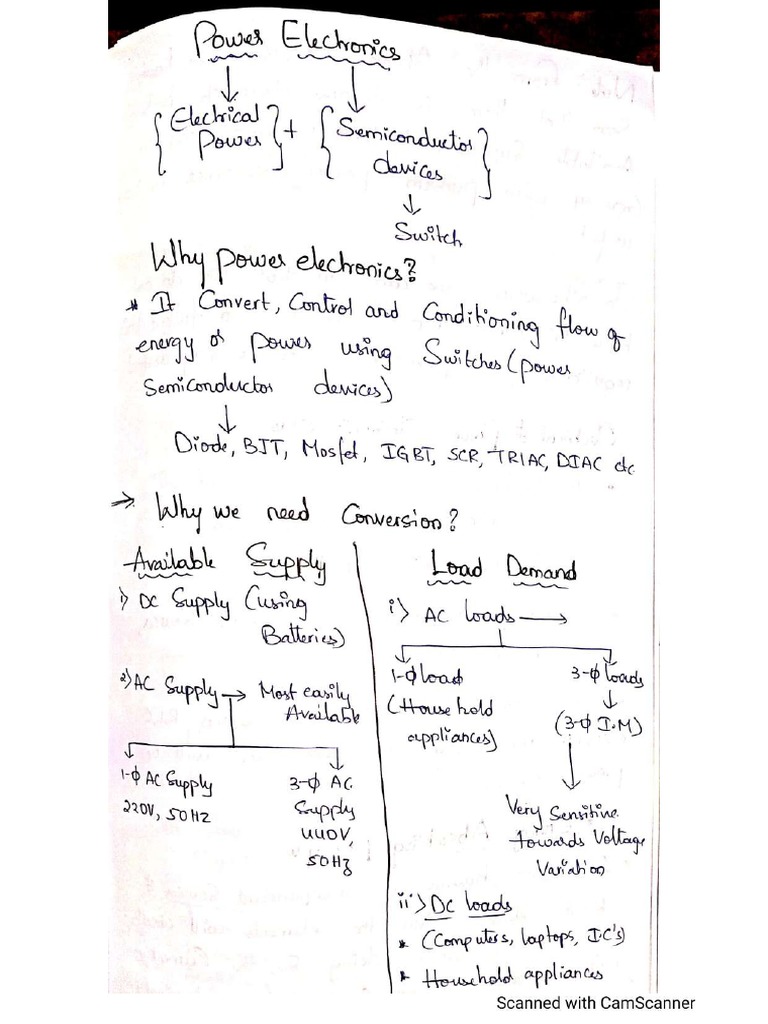 Power Electronics
{Electrical Power} + {Semiconductor devices}
Switch
Why power electronics?
* It Convert, Control and Conditioning flow of
energy or power using Switches (power
Semiconductor devices)
Diode, BJT, Mosfet, IGBT, SCR, TRIAC, DIAC etc
⇒ Why we need Conversion?
Available Supply
1) DC Supply (using
Batteries)
2) AC Supply → Most easily
Available
1-ϕ AC Supply
220V, 50HZ
3-ϕ AC
Supply
440V,
50Hz
Load Demand
i) AC loads →
1-ϕ load
(House hold
appliances)
3-ϕ loads
(3-ϕ I.M)
Very Sensitive
towards Voltage
Variation
ii) DC loads
* (Computers, laptops, I.C's)
* Household appliances
Scanned with CamScanner